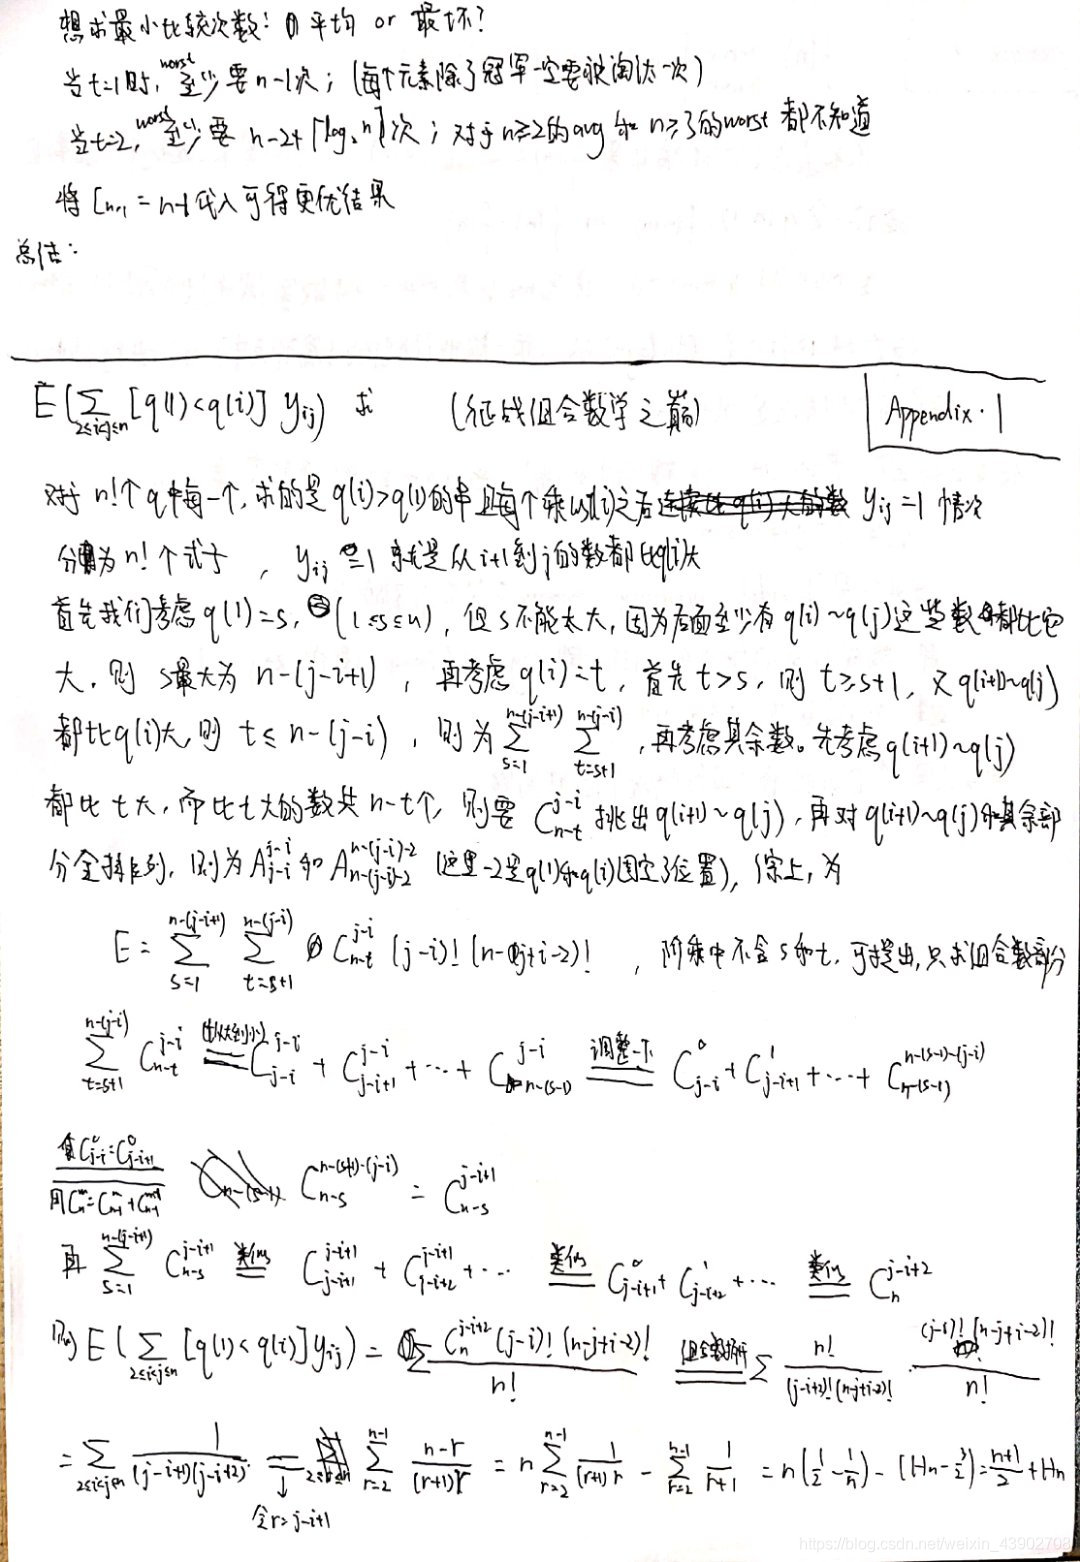 想求最小比较次数: ① 平均 or 最坏?
当t=1时, worst 至少要n-1次; (每个元素除了冠军一定要被淘汰一次)
当t=2, worst 至少要 n-2+⌈log₂n⌉次; 对于n≥2的avg 和 n≥3的worst 都不知道
将 Cₙ,₁ = n-1代入可得更优结果
总结:
Appendix.1
E(∑_{2≤i<j≤n} [q(1)<q(i)] y_{ij}) 求 (征战组合数学之巅)
对于 n!个q中每一个, 求的是 q(i)>q(1)的串且每个乘以(i)之后 y_{ij}=1 情况
分为 n! 个式子, y_{ij}=1 就是从i+1到j的数都比q(i)大
首先我们考虑 q(1)=s, (1≤s≤n), 但 s不能太大, 因为后面至少有 q(i)~q(j)这些数都比它
大. 则 s最大为 n-(j-i+1), 再考虑 q(i)=t, 首先 t>s, 则 t≥s+1, 又 q(i+1)~q(j)
都比q(i)大, 则 t≤n-(j-i), 则为 ∑_{s=1}^{n-(j-i+1)} ∑_{t=s+1}^{n-(j-i)}, 再考虑其余数。先考虑 q(i+1)~q(j)
都比 t 大, 而比t大的数共 n-t个, 则要 C_{n-t}^{j-i} 挑出 q(i+1)~q(j), 再对 q(i+1)~q(j)和其余部
分全排列, 则为 A_{j-i}^{j-i} 和 A_{n-(j-i)-2}^{n-(j-i)-2} (这里-2是q(1)和q(i)固定了位置), 综上, 为
E = ∑_{s=1}^{n-(j-i+1)} ∑_{t=s+1}^{n-(j-i)} C_{n-t}^{j-i} (j-i)! (n-j+i-2)!, 阶乘中不含 s 和 t, 可提出, 只求组合数部分
∑_{t=s+1}^{n-(j-i)} C_{n-t}^{j-i} =(t从大到小)= C_{j-i}^{j-i} + C_{j-i+1}^{j-i} + ··· + C_{n-(s-1)}^{j-i} =(调整一下)= C_{j-i}^{0} + C_{j-i+1}^{1} + ··· + C_{n-(s-1)}^{n-(s-1)-(j-i)}
C_{j-i}^{0}=C_{j-i+1}^{0}
用C_n^m=C_{n-1}^m+C_{n-1}^{m-1} C_{n-s}^{n-(s+1)-(j-i)} = C_{n-s}^{j-i+1}
再 ∑_{s=1}^{n-(j-i+1)} C_{n-s}^{j-i+1} =(类似)= C_{j-i+1}^{j-i+1} + C_{j-i+2}^{j-i+1} + ··· =(类似)= C_{j-i+1}^{0} + C_{j-i+2}^{1} + ··· =(类似)= C_n^{j-i+2}
则 E(∑_{2≤i<j≤n} [q(1)<q(i)] y_{ij}) = ∑ C_n^{j-i+2} (j-i)! (n-j+i-2)! / n! =(组合数拆开)= ∑ n! / ((j-i+2)! (n-j+i-2)!) · (j-i)! (n-j+i-2)! / n!
= ∑_{2≤i<j≤n} 1/((j-i+1)(j-i+2)) = ∑_{r=2}^{n-1} (n-r)/((r+1)r) = n ∑_{r=2}^{n-1} 1/((r+1)r) - ∑_{r=2}^{n-1} 1/(r+1) = n(1/2 - 1/n) - (Hn - 3/2) = (n+1)/2 + Hn
令r=j-i+1
https://blog.csdn.net/weixin_43902708